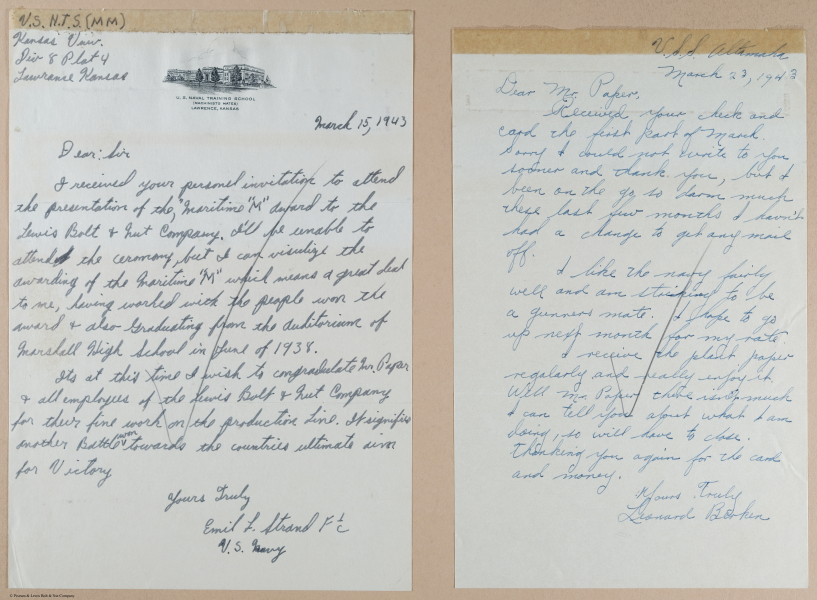 U.S. N.T.S. (MM)
Kansas Univ.
Div 8 Plat 4
Lawrance Kansas
U. S. NAVAL TRAINING SCHOOL
(MACHINISTS MATES)
LAWRENCE, KANSAS
March 15, 1943
Dear: Sir
I received your personal invitation to attend
the presentation of the, "Maritime "M" award to the
Lewis Bolt & Nut Company. I'll be unable to
attend the ceremony, but I can visulize the
awarding of the Maritime "M" which means a great deal
to me, having worked with the people won the
award & also Graduating from the Auditorium of
Marshall High School in June of 1938.
Its at this time I wish to congradulate Mr. Paper
& all employees of the Lewis Bolt & Nut Company
for their fine work on the production line. It signifies
another Battle won towards the countries ultimate aim
for Victory
Yours Truly
Emil L. Strand F1c
U.S. Navy
U.S.S. Altamaha
March 23, 1943
Dear Mr. Paper,
Received your check and
card the first part of March.
Sorry I could not write to you
sooner and thank you, but I
been on the go so darn much
these last few months I havn't
had a change to get any mail
off.
I like the navy fairly
well and am striking to be
a gunners mate. I hope to go
up next month for my rate.
I receive the plant paper
regularly and really enjoy it.
Well Mr. Paper there isn't much
I can tell you about what I am
doing, so will have to close.
Thanking you again for the card
and money.
Yours Truly
Leonard
© Preserved Lewis Bolt & Nut Company